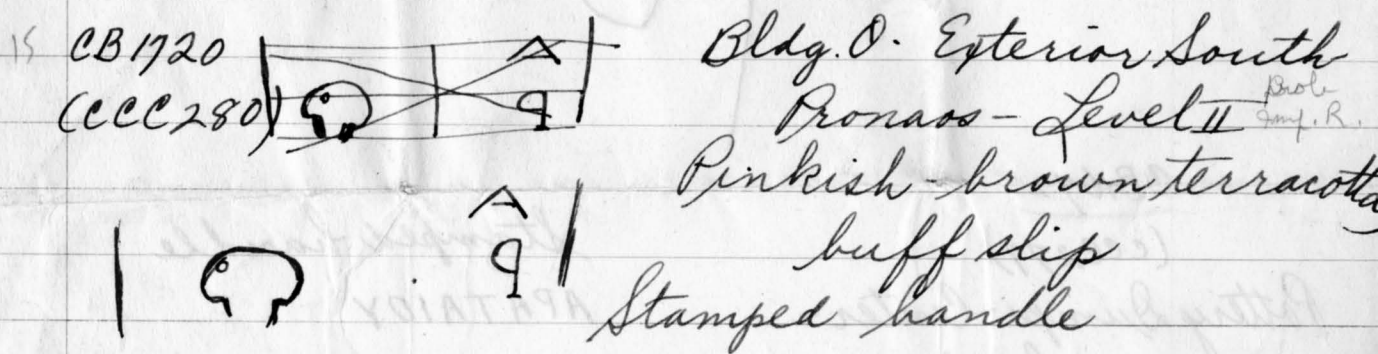 15 CB1720 A Bldg. O. Exterior South
(CCC280) P Pronaos - Level II Prob
Imp. R.
Pinkish-brown terracotta,
A buff slip
P
Stamped handle